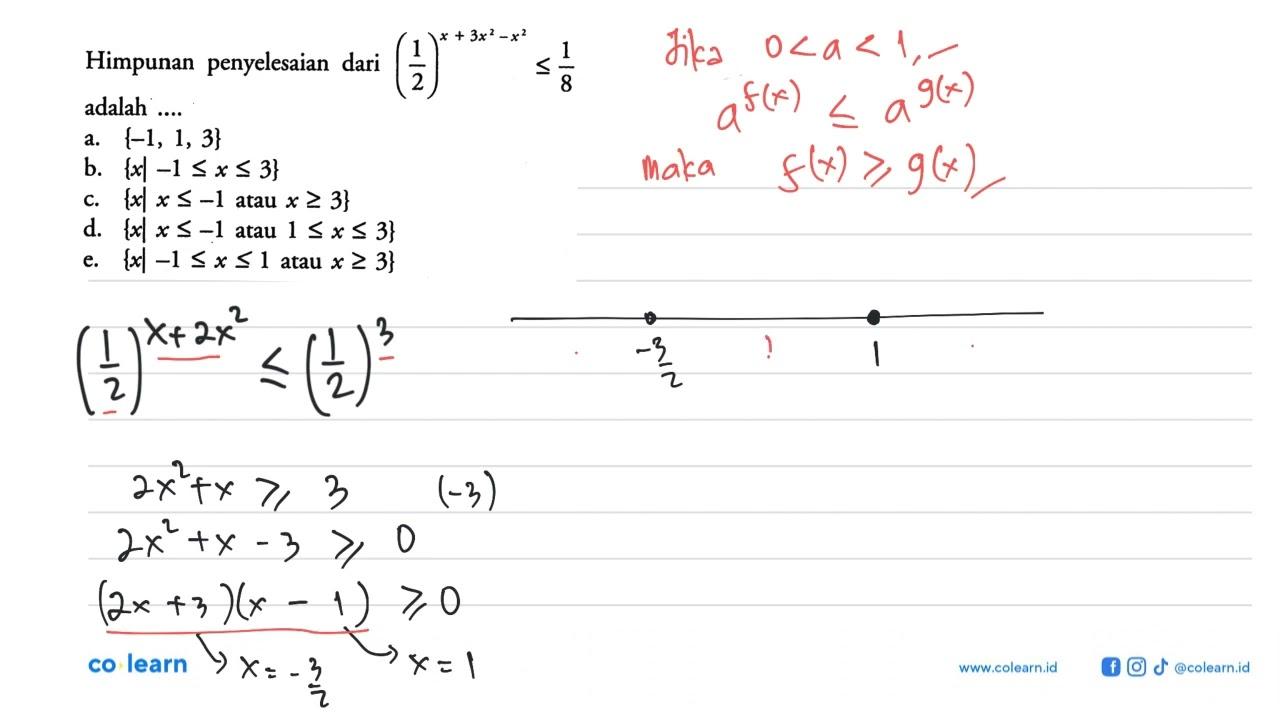 Himpunan penyelesaian dari (1/2)^(x + 3x² – x²) ≤ 1/8
adalah ....
a. {–1, 1, 3}
b. {x| –1 ≤ x ≤ 3}
c. {x| x ≤ –1 atau x ≥ 3}
d. {x| x ≤ –1 atau 1 ≤ x ≤ 3}
e. {x| –1 ≤ x ≤ 1 atau x ≥ 3}
Jika 0 < a < 1,
a^f(x) ≤ a^g(x)
maka f(x) ≥ g(x)
(1/2)^(x+2x²) ≤ (1/2)^3
-3/2 ! 1
2x² + x ≥ 3 (-3)
2x² + x - 3 ≥ 0
(2x + 3)(x - 1) ≥ 0
x = -3/2 x = 1
co learn
www.colearn.id @colearn.id